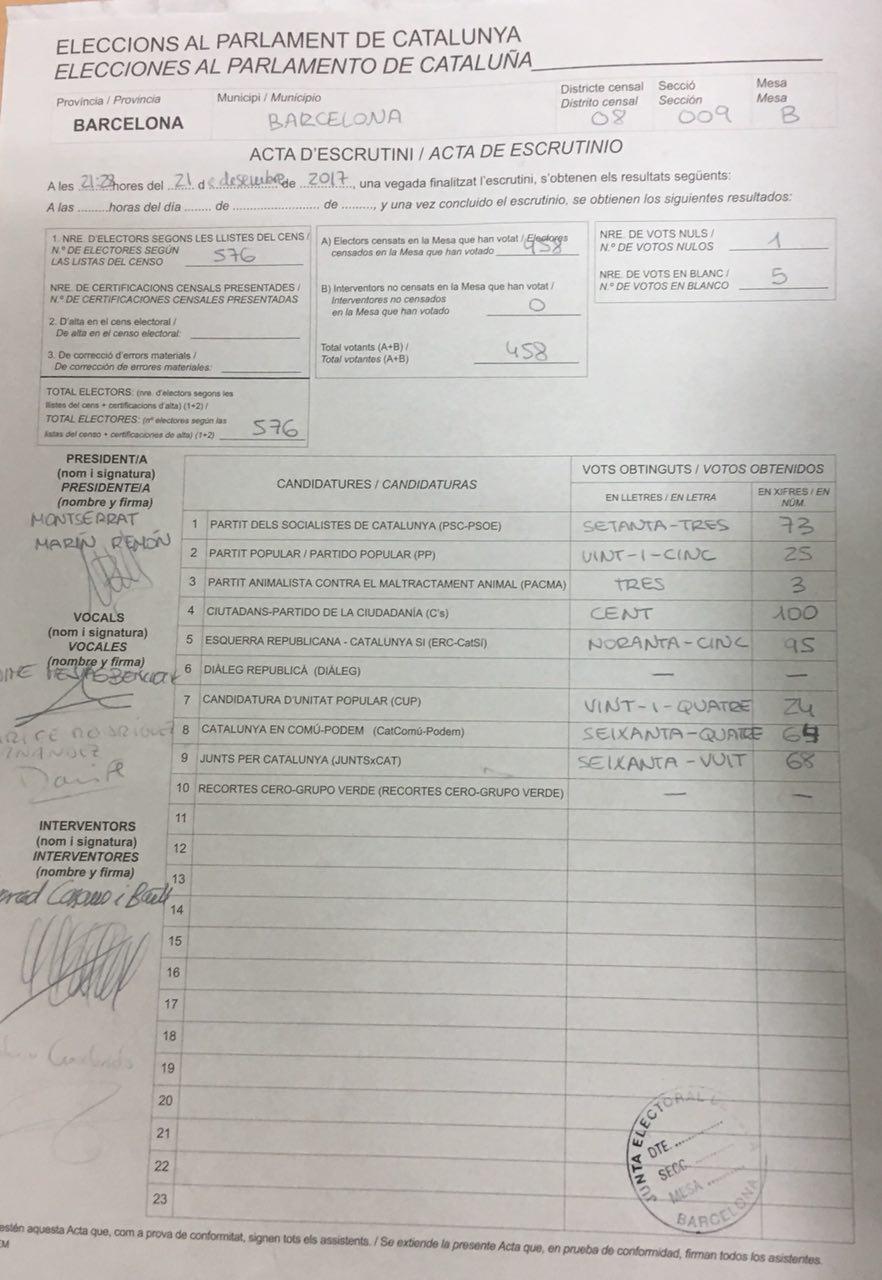 ELECCIONS AL PARLAMENT DE CATALUNYA
ELECCIONES AL PARLAMENTO DE CATALUÑA
Província / Provincia
BARCELONA
Municipi / Municipio
BARCELONA
Districte censal
Distrito censal
08
Secció
Sección
009
Mesa
Mesa
B
ACTA D'ESCRUTINI / ACTA DE ESCRUTINIO
A les 21:28 hores del 21 de desembre de 2017, una vegada finalitzat l'escrutini, s'obtenen els resultats següents:
A las .........horas del día ....... de .......................... de ........., y una vez concluido el escrutinio, se obtienen los siguientes resultados:
1. NRE. D'ELECTORS SEGONS LES LLISTES DEL CENS /
N.º DE ELECTORES SEGÚN
LAS LISTAS DEL CENSO 576
NRE. DE CERTIFICACIONS CENSALS PRESENTADES /
N.º DE CERTIFICACIONES CENSALES PRESENTADAS
2. D'alta en el cens electoral /
De alta en el censo electoral:
3. De correcció d'errors materials /
De corrección de errores materiales:
TOTAL ELECTORS: (nre. d'electors segons les
llistes del cens + certificacions d'alta) (1+2) /
TOTAL ELECTORES: (nº electores según las
listas del censo + certificaciones de alta) (1+2) 576
A) Electors censats en la Mesa que han votat / Electores
censados en la Mesa que han votado 458
B) Interventors no censats en la Mesa que han votat /
Interventores no censados
en la Mesa que han votado 0
Total votants (A+B) /
Total votantes (A+B) 458
NRE. DE VOTS NULS /
N.º DE VOTOS NULOS 1
NRE. DE VOTS EN BLANC /
N.º DE VOTOS EN BLANCO 5
PRESIDENT/A
(nom i signatura)
PRESIDENTE/A
(nombre y firma)
MONTSERRAT
MARÍN REMÓN
VOCALS
(nom i signatura)
VOCALES
(nombre y firma)
INTERVENTORS
(nom i signatura)
INTERVENTORES
(nombre y firma)
CANDIDATURES / CANDIDATURAS
VOTS OBTINGUTS / VOTOS OBTENIDOS
EN LLETRES / EN LETRA
EN XIFRES / EN NÚM.
1 PARTIT DELS SOCIALISTES DE CATALUNYA (PSC-PSOE) SETANTA-TRES 73
2 PARTIT POPULAR / PARTIDO POPULAR (PP) VINT-I-CINC 25
3 PARTIT ANIMALISTA CONTRA EL MALTRACTAMENT ANIMAL (PACMA) TRES 3
4 CIUTADANS-PARTIDO DE LA CIUDADANÍA (C's) CENT 100
5 ESQUERRA REPUBLICANA - CATALUNYA SI (ERC-CatSí) NORANTA-CINC 95
6 DIÀLEG REPUBLICÀ (DIÀLEG) — —
7 CANDIDATURA D'UNITAT POPULAR (CUP) VINT-I-QUATRE 24
8 CATALUNYA EN COMÚ-PODEM (CatComú-Podem) SEIXANTA-QUATRE 64
9 JUNTS PER CATALUNYA (JUNTSxCAT) SEIXANTA-VUIT 68
10 RECORTES CERO-GRUPO VERDE (RECORTES CERO-GRUPO VERDE) — —
11
12
13
14
15
16
17
18
19
20
21
22
23
JUNTA ELECTORAL
DTE. ............
SECC. ............
MESA ............
BARCELONA
estén aquesta Acta que, com a prova de conformitat, signen tots els assistents. / Se extiende la presente Acta que, en prueba de conformidad, firman todos los asistentes.